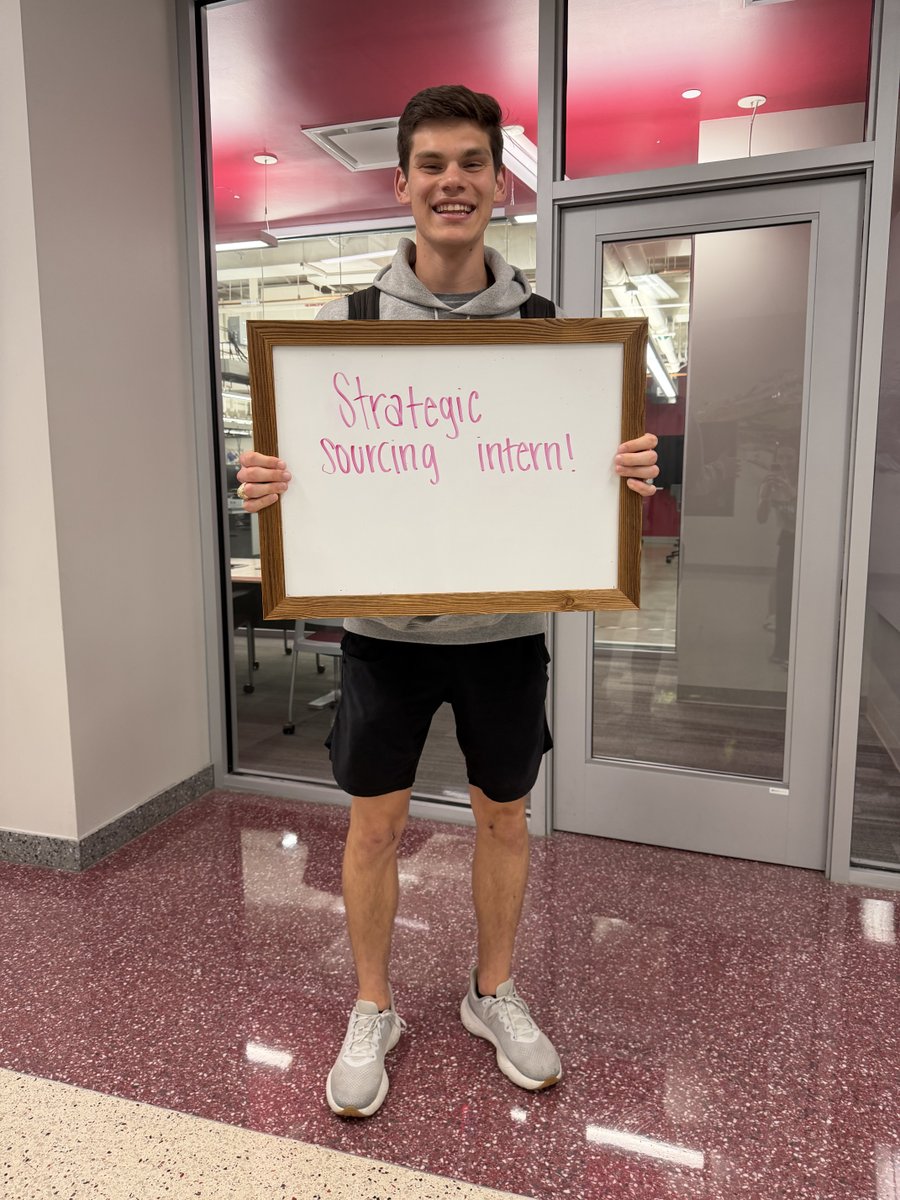 Strategic
sourcing intern!